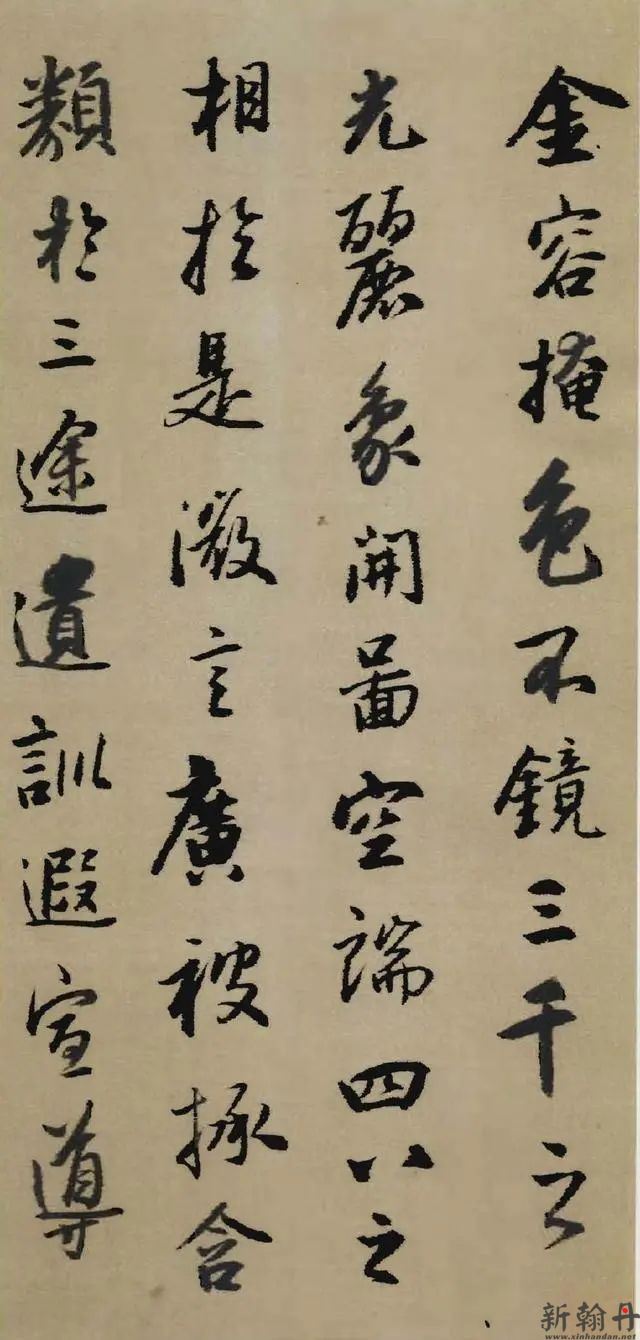 金容掩色不鏡三千之
光麗象開啚空端四八之
相於是微言廣被拯含
類於三途遺訓遐宣導
新翰丹
www.xinhandan.net